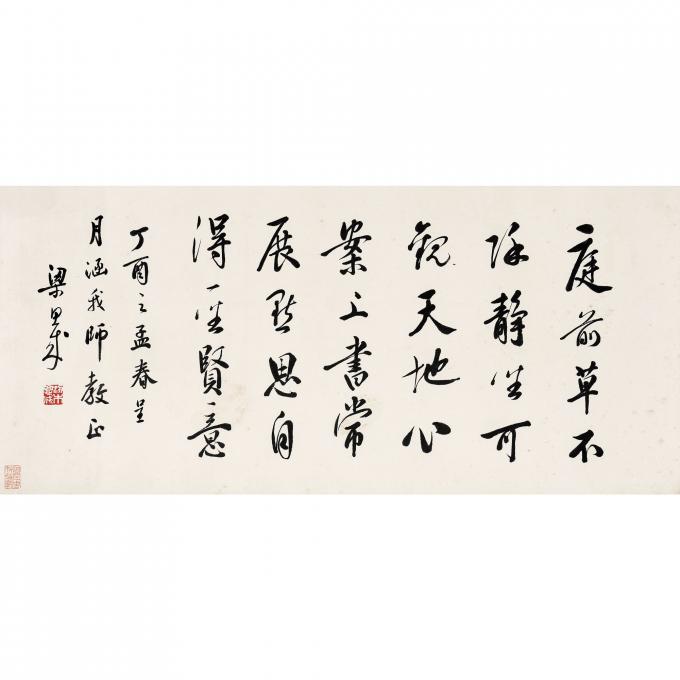 庭前草不
除静坐可
觀天地心
案上書常
展默思自
得聖賢意
丁酉之孟春呈
月涵我師教正
梁思成